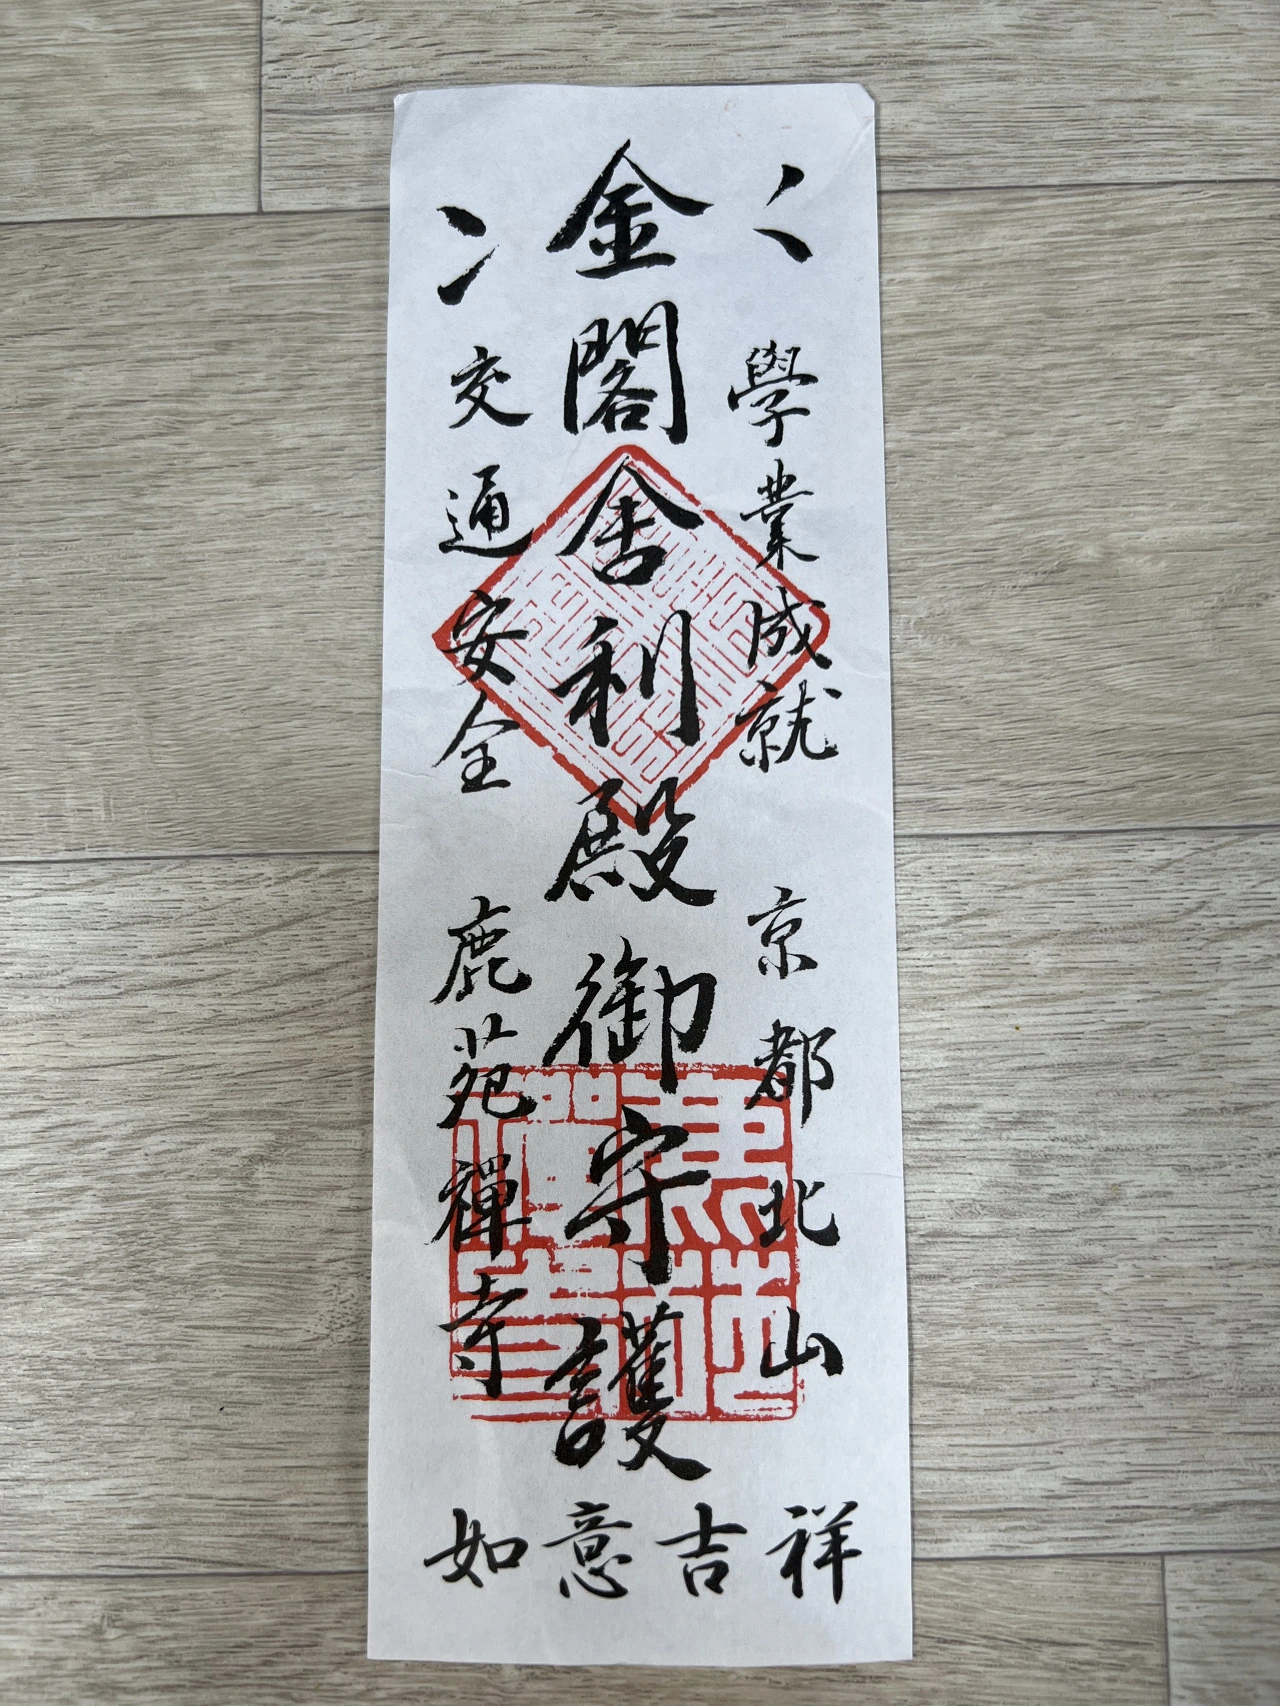 學業成就 京都北山
金閣舎利殿御守護
交通安全 鹿苑禪寺
如意吉祥
鹿苑
禪寺